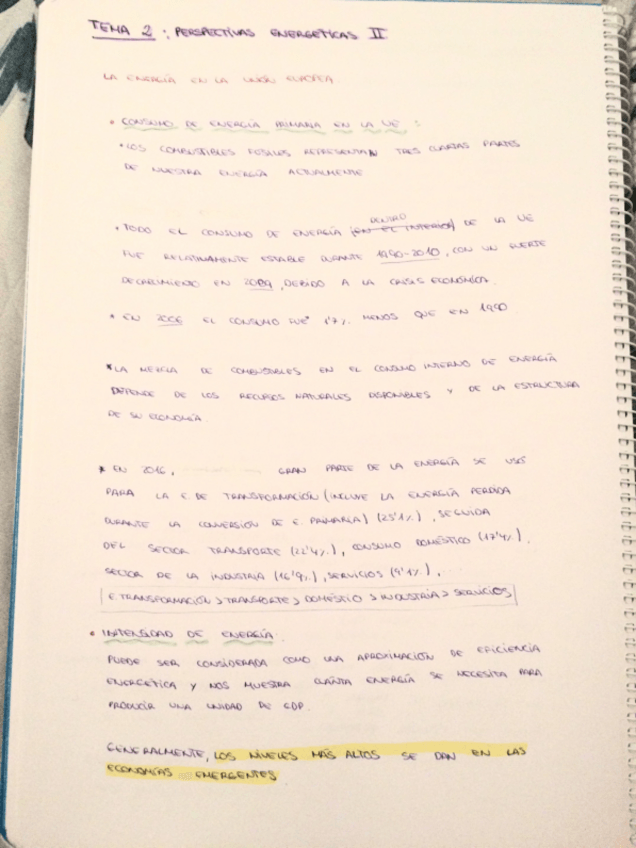 TEMA 2: PERSPECTIVAS ENERGETICAS II
LA ENERGÍA EN LA UNIÓN EUROPEA
• CONSUMO DE ENERGÍA PRIMARIA EN LA UE:
• LOS COMBUSTIBLES FOSILES REPRESENTAN TRES CUARTAS PARTES
DE NUESTRA ENERGÍA ACTUALMENTE
DENTRO
• TODO EL CONSUMO DE ENERGÍA (EN EL INTERIOR) DE LA UE
FUE RELATIVAMENTE ESTABLE DURANTE 1990-2010, CON UN FUERTE
DECAIMIENTO EN 2009, DEBIDO A LA CRISIS ECONÓMICA.
* EN EL CONSUMO FUE 1'7% MENOS QUE EN 1990
* LA MEZCLA DE COMBUSTIBLES EN EL CONSUMO INTERNO DE ENERGÍA
DEPENDE DE LOS RECURSOS NATURALES DISPONIBLES Y DE LA ESTRUCTURA
DE SU ECONOMÍA
* EN 2016, GRAN PARTE DE LA ENERGÍA SE USÓ
PARA LA E. DE TRANSFORMACIÓN (INCLUYE LA ENERGÍA PERDIDA
DURANTE LA CONVERSIÓN DE E. PRIMARIA) (25'1%), SEGUIDA
DEL SECTOR TRANSPORTE (22'4%), CONSUMO DOMÉSTICO (17'4%),
SECTOR DE LA INDUSTRIA (16'9%), SERVICIOS (9'1%),
E. TRANSFORMACIÓN > TRANSPORTE > DOMÉSTIO > INDUSTRIA > SERVICIOS
• INTENSIDAD DE ENERGÍA.
PUEDE SER CONSIDERADA COMO UNA APROXIMACIÓN DE EFICIENCIA
ENERGETICA Y NOS MUESTRA CUÁNTA ENERGÍA SE NECESITA PARA
PRODUCIR UNA UNIDAD DE GDP.
GENERALMENTE, LOS NIVELES MÁS ALTOS SE DAN EN LAS
ECONOMÍAS EMERGENTES